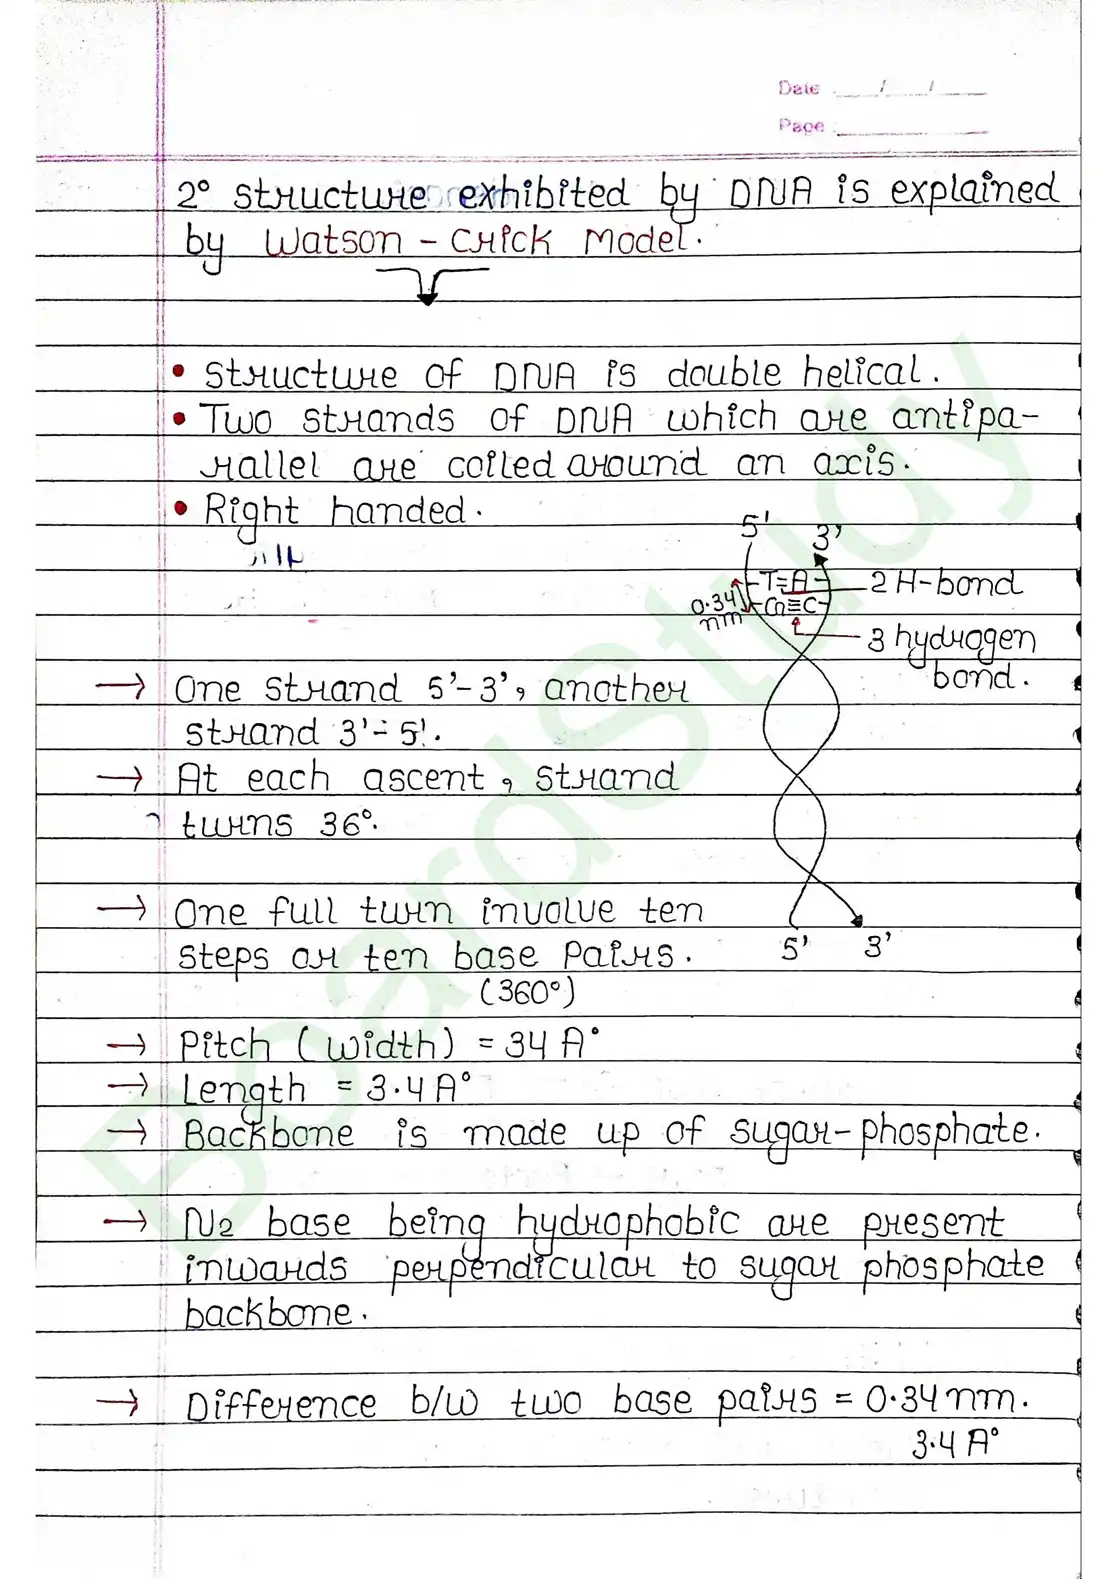 Date ___/___/___
Page
2° structure exhibited by DNA is explained
by Watson - Crick Model.
• Structure of DNA is double helical.
• Two strands of DNA which are antipa-
rallel are coiled around an axis.
• Right handed.
5' 3'
T=A 2 H-bond
0.34 nm
G≡C
3 hydrogen
bond.
→ One strand 5'-3', another
strand 3'-5'.
→ At each ascent, strand
turns 36°.
→ One full turn involve ten
steps or ten base pairs.
(360°)
5' 3'
→ Pitch (width) = 34 A°
→ Length = 3.4 A°
→ Backbone is made up of sugar-phosphate.
→ N2 base being hydrophobic are present
inwards perpendicular to sugar phosphate
backbone.
→ Difference b/w two base pairs = 0.34 nm.
3.4 A°
BoardStudy